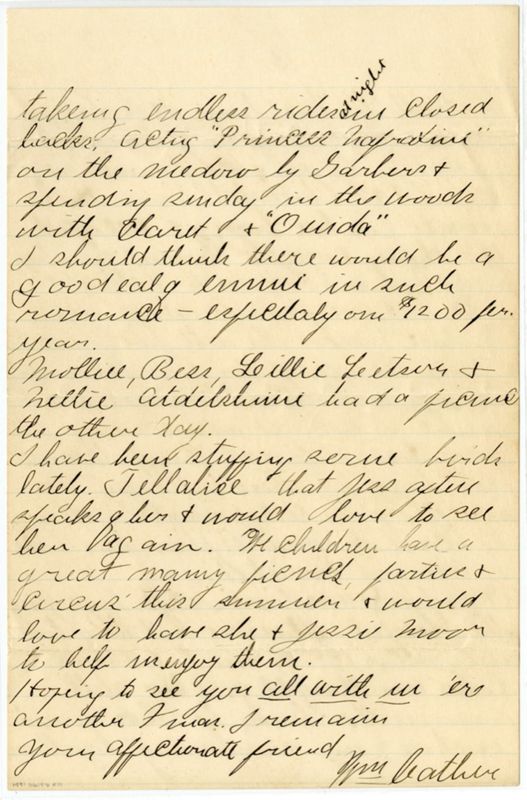 at night
taking endless rides in closed
hacks, acting "Princess Napraxine"
on the medow by Garbers &
spending sunday in the woods
with Claret & "Ouida"
I should think there would be a
good eal of ennui in such
romance – especialy on $1200 per.
year.
Mollie, Bess, Lillie Letson &
Nettie had a picnic
the other day.
I have been stuffing some birds
lately. Tell alice that Jess often
speaks of her & would love to see
her again. We children have a
great many picnics, parties &
circus' this summer & would
love to have she & Jessie moon
to help us enjoy them.
Hoping to see you all with us 'ere
another I remain
your affectionate friend
Wm Cather